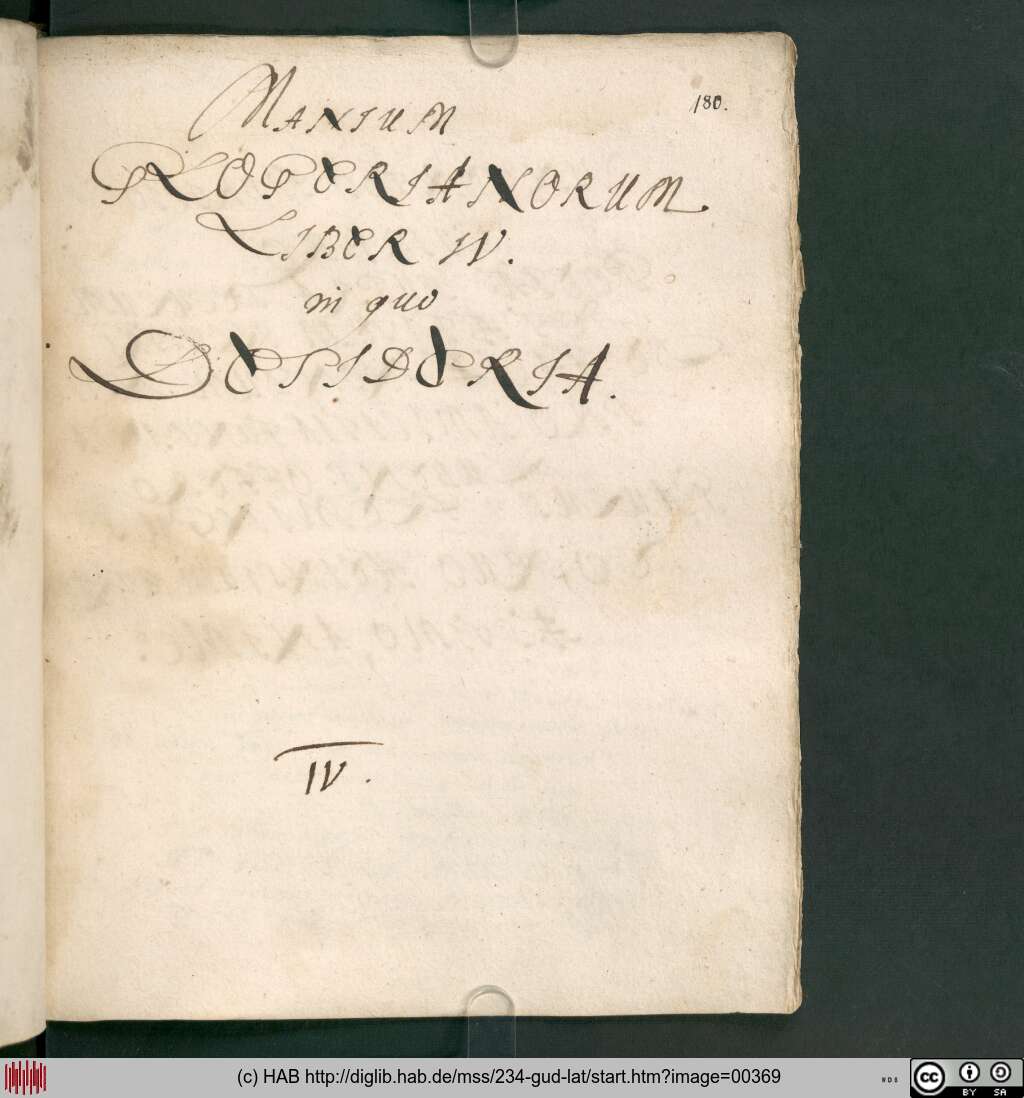 180.
MANIUM
ROPERIANORUM
LIBER IV.
in quo
DESIDERIA.
IV.
(c) HAB http://diglib.hab.de/mss/234-gud-lat/start.htm?image=00369
WDB
cc
BY SA